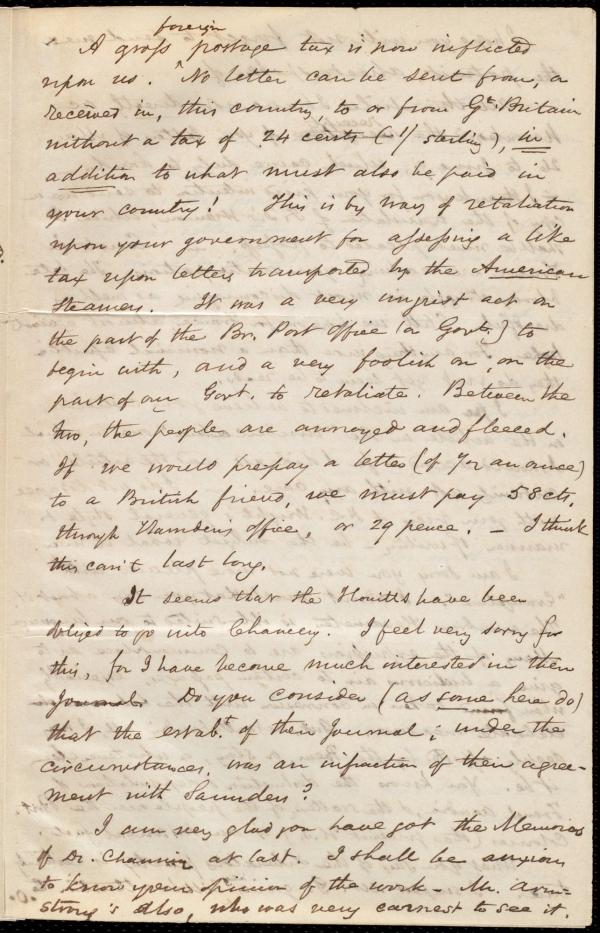 foreign
A gross postage tax is now inflicted
upon us. ^No letter can be sent from, or
received in, this country, to or from Gt. Britain
without a tax of 24 cents (-1/ sterling), in
addition to what must also be paid in
your country! This is by way of retaliation
upon your government for assessing a like
tax upon letters transported by the American
steamers. It was a very unjust act on
the part of the Br. Post office (or Govt.) to
begin with, and a very foolish on; on the
part of our Govt. to retaliate. Between the
two, the people are annoyed and fleeced.
If we would prepay a letter (of ½ an ounce)
to a British friend, we must pay 58 cts.
through office, or 29 pence. – I think
this can't last long.
It seems that the Howitts have been
obliged to go into Chancery. I feel very sorry for
this, for I have become much interested in their
Journal. Do you consider (as some here do)
that the estabt. of their Journal; under the
circumstances, was an infraction of their agree-
ment with Saunders?
I am very glad you have got the Memoirs
of Dr. Channing at last. I shall be anxious
to know your opinion of the work – Mr. Arm-
strong's also, who was very earnest to see it.